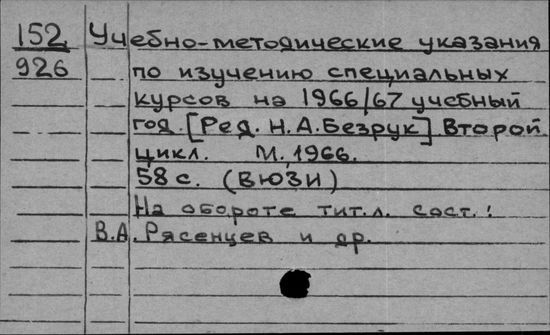 152 Учебно-методические указания
926 по изучению специальных
курсов на 1966/67 учебный
год. [Ред. Н.А.Безрук] Второй
цикл. М. 1966.
58 с. (ВЮЗИ)
На обороте тит.л. сост.:
В.А. Рясенцев и др.